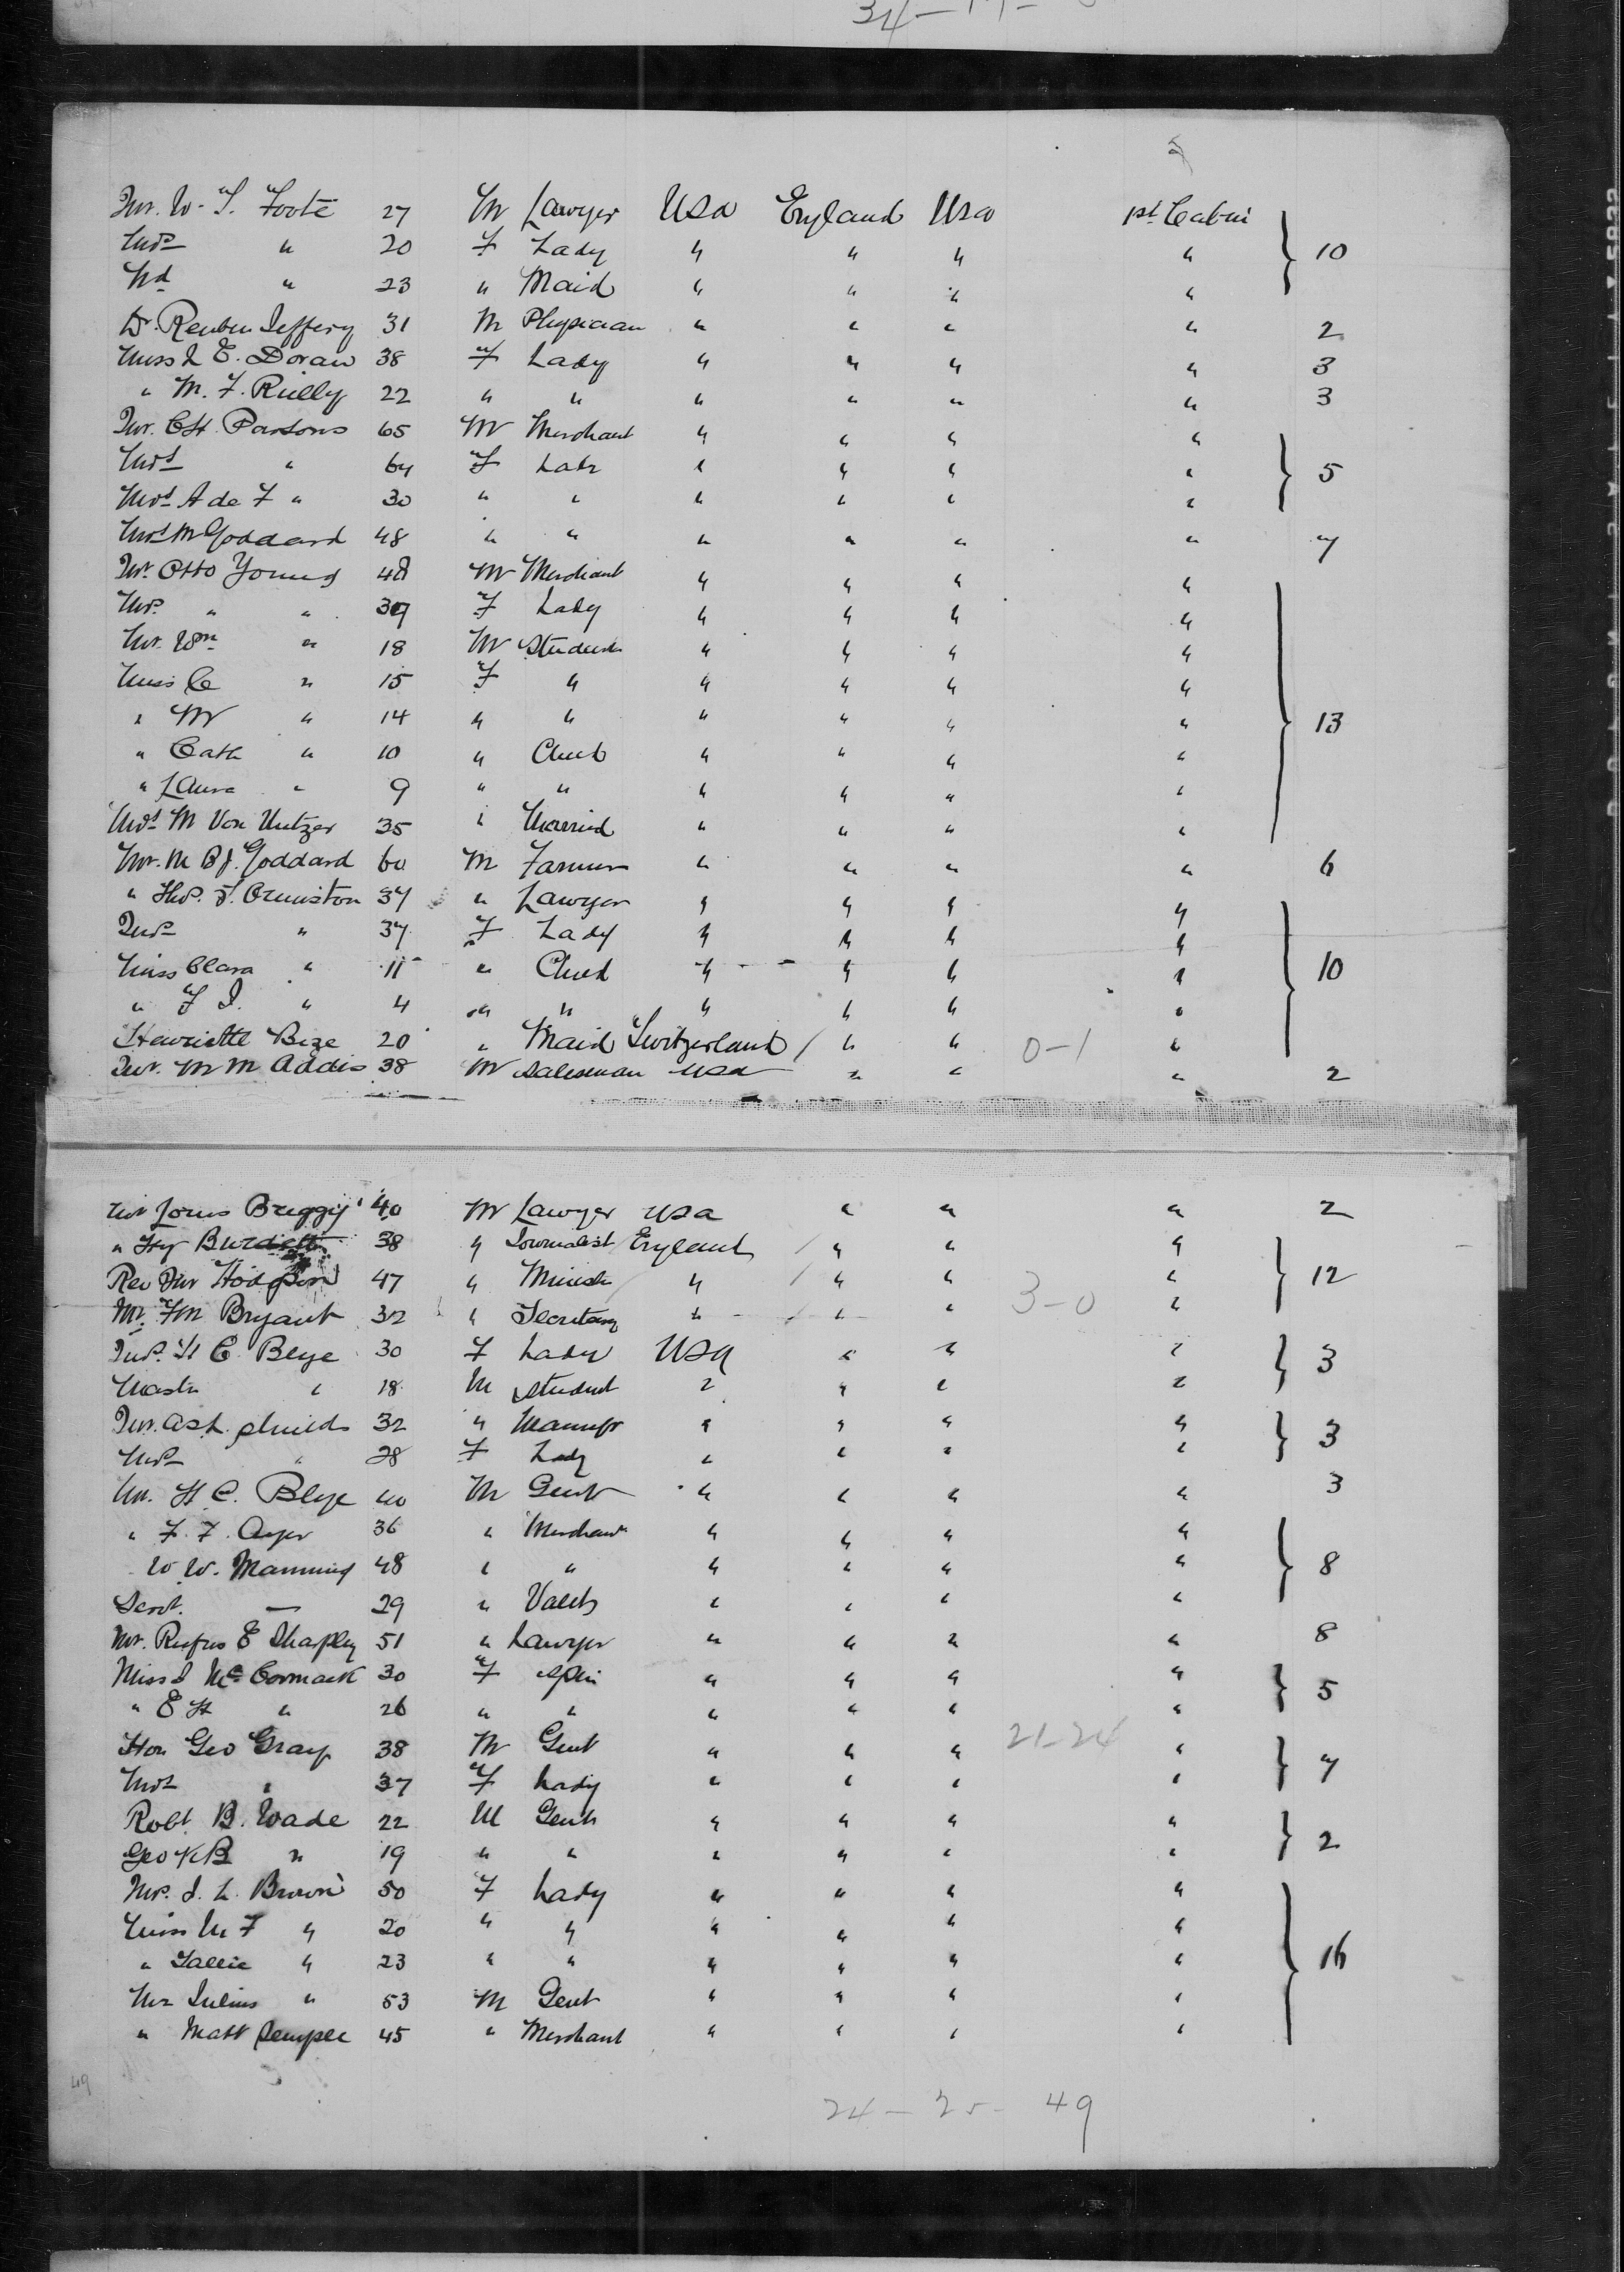 34 - 17 -
Mr. W. T. Foote 27 M Lawyer USA England USA 1st Cabin
Mrs " 20 F Lady " " " " 10
Md " 23 " Maid " " " "
Dr. Reuben Jeffery 31 M Physician " " " " 2
Miss L E. Doran 38 F Lady " " " " 3
" M. F. Reilly 22 " " " " " " 3
Mr. C H. Parsons 65 M Merchant " " " "
Mrs " 64 F Lady " " " " 5
Mrs A de F " 30 " " " " " "
Mrs M Goddard 48 " " " " " " 7
Mr. Otto Young 48 M Merchant " " " "
Mrs. " " 39 F Lady " " " "
Mr. Wm " 18 M Student " " " "
Miss C " 15 F " " " " "
" M " 14 " " " " " " 13
" Cath " 10 " Child " " " "
" Laura " 9 " " " " " "
Mrs M Von Utzer 35 " Married " " " "
Mr. M B J. Goddard 60 M Farmer " " " " 6
" Thos. F. Ormiston 37 " Lawyer " " " "
Mrs " 37 F Lady " " " "
Miss Clara " 11 " Child " " " " 10
" F I. " 4 " " " " " "
Henriette Bize 20 " Maid Switzerland / " " 0-1 "
Mr. M M Addis 38 M Salesman USA " " " 2
Mr Louis Breggy 40 M Lawyer USA " " " 2
" Hy Burdett 38 " Journalist England / " " "
Rev Hodgson 47 " Minister " / " " " 12
Mr. F M Bryant 32 " Secretary " " " 3-0 "
Mrs. H C. Blye 30 F Lady USA " " " 3
Mastr " 18 M Student " " " "
Mr. A S L. Shields 32 " Manufr " " " " 3
Mrs " 28 F Lady " " " "
Mr. H C. Blye 40 M Gent " " " " 3
" F. F. Ayer 36 " Merchant " " " "
W. W. Manning 48 " " " " " " 8
Servt. — 29 " Valet " " " "
Mr. Rufus E Shapley 51 " Lawyer " " " " 8
Miss J McCormack 30 F Spin " " " " 5
" E H " 26 " " " " " "
Hon Geo Gray 38 M Gent " " " 21-24 " 7
Mrs " 37 F Lady " " " "
Robt B. Wade 22 M Gent " " " " 2
Geo K B " 19 " " " " " "
Mrs. J. L. Brown 50 F Lady " " " "
Miss M F " 20 " " " " " "
" Sallie " 23 " " " " " " 16
Mr Julius " 53 M Gent " " " "
" Matt Semple 45 " Merchant " " " "
49
24 - 25 - 49